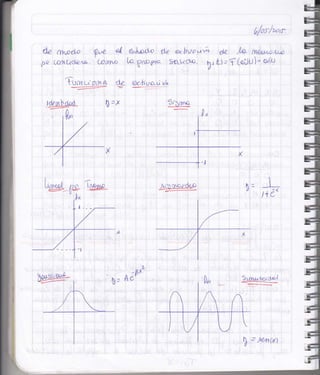 6/05/2005
de modo que el estado de activación de la neurona
se considera como la propia salida.
Funciones de activación
Identidad y=x
Signo
fn
fn
x
x
Lineal por Tramos
Sigmoidea
y= 1/1+e^-x
x
x
Gaussiana
y= Ae^-Bx²
fn
Sinusoidal
y = sen(x)